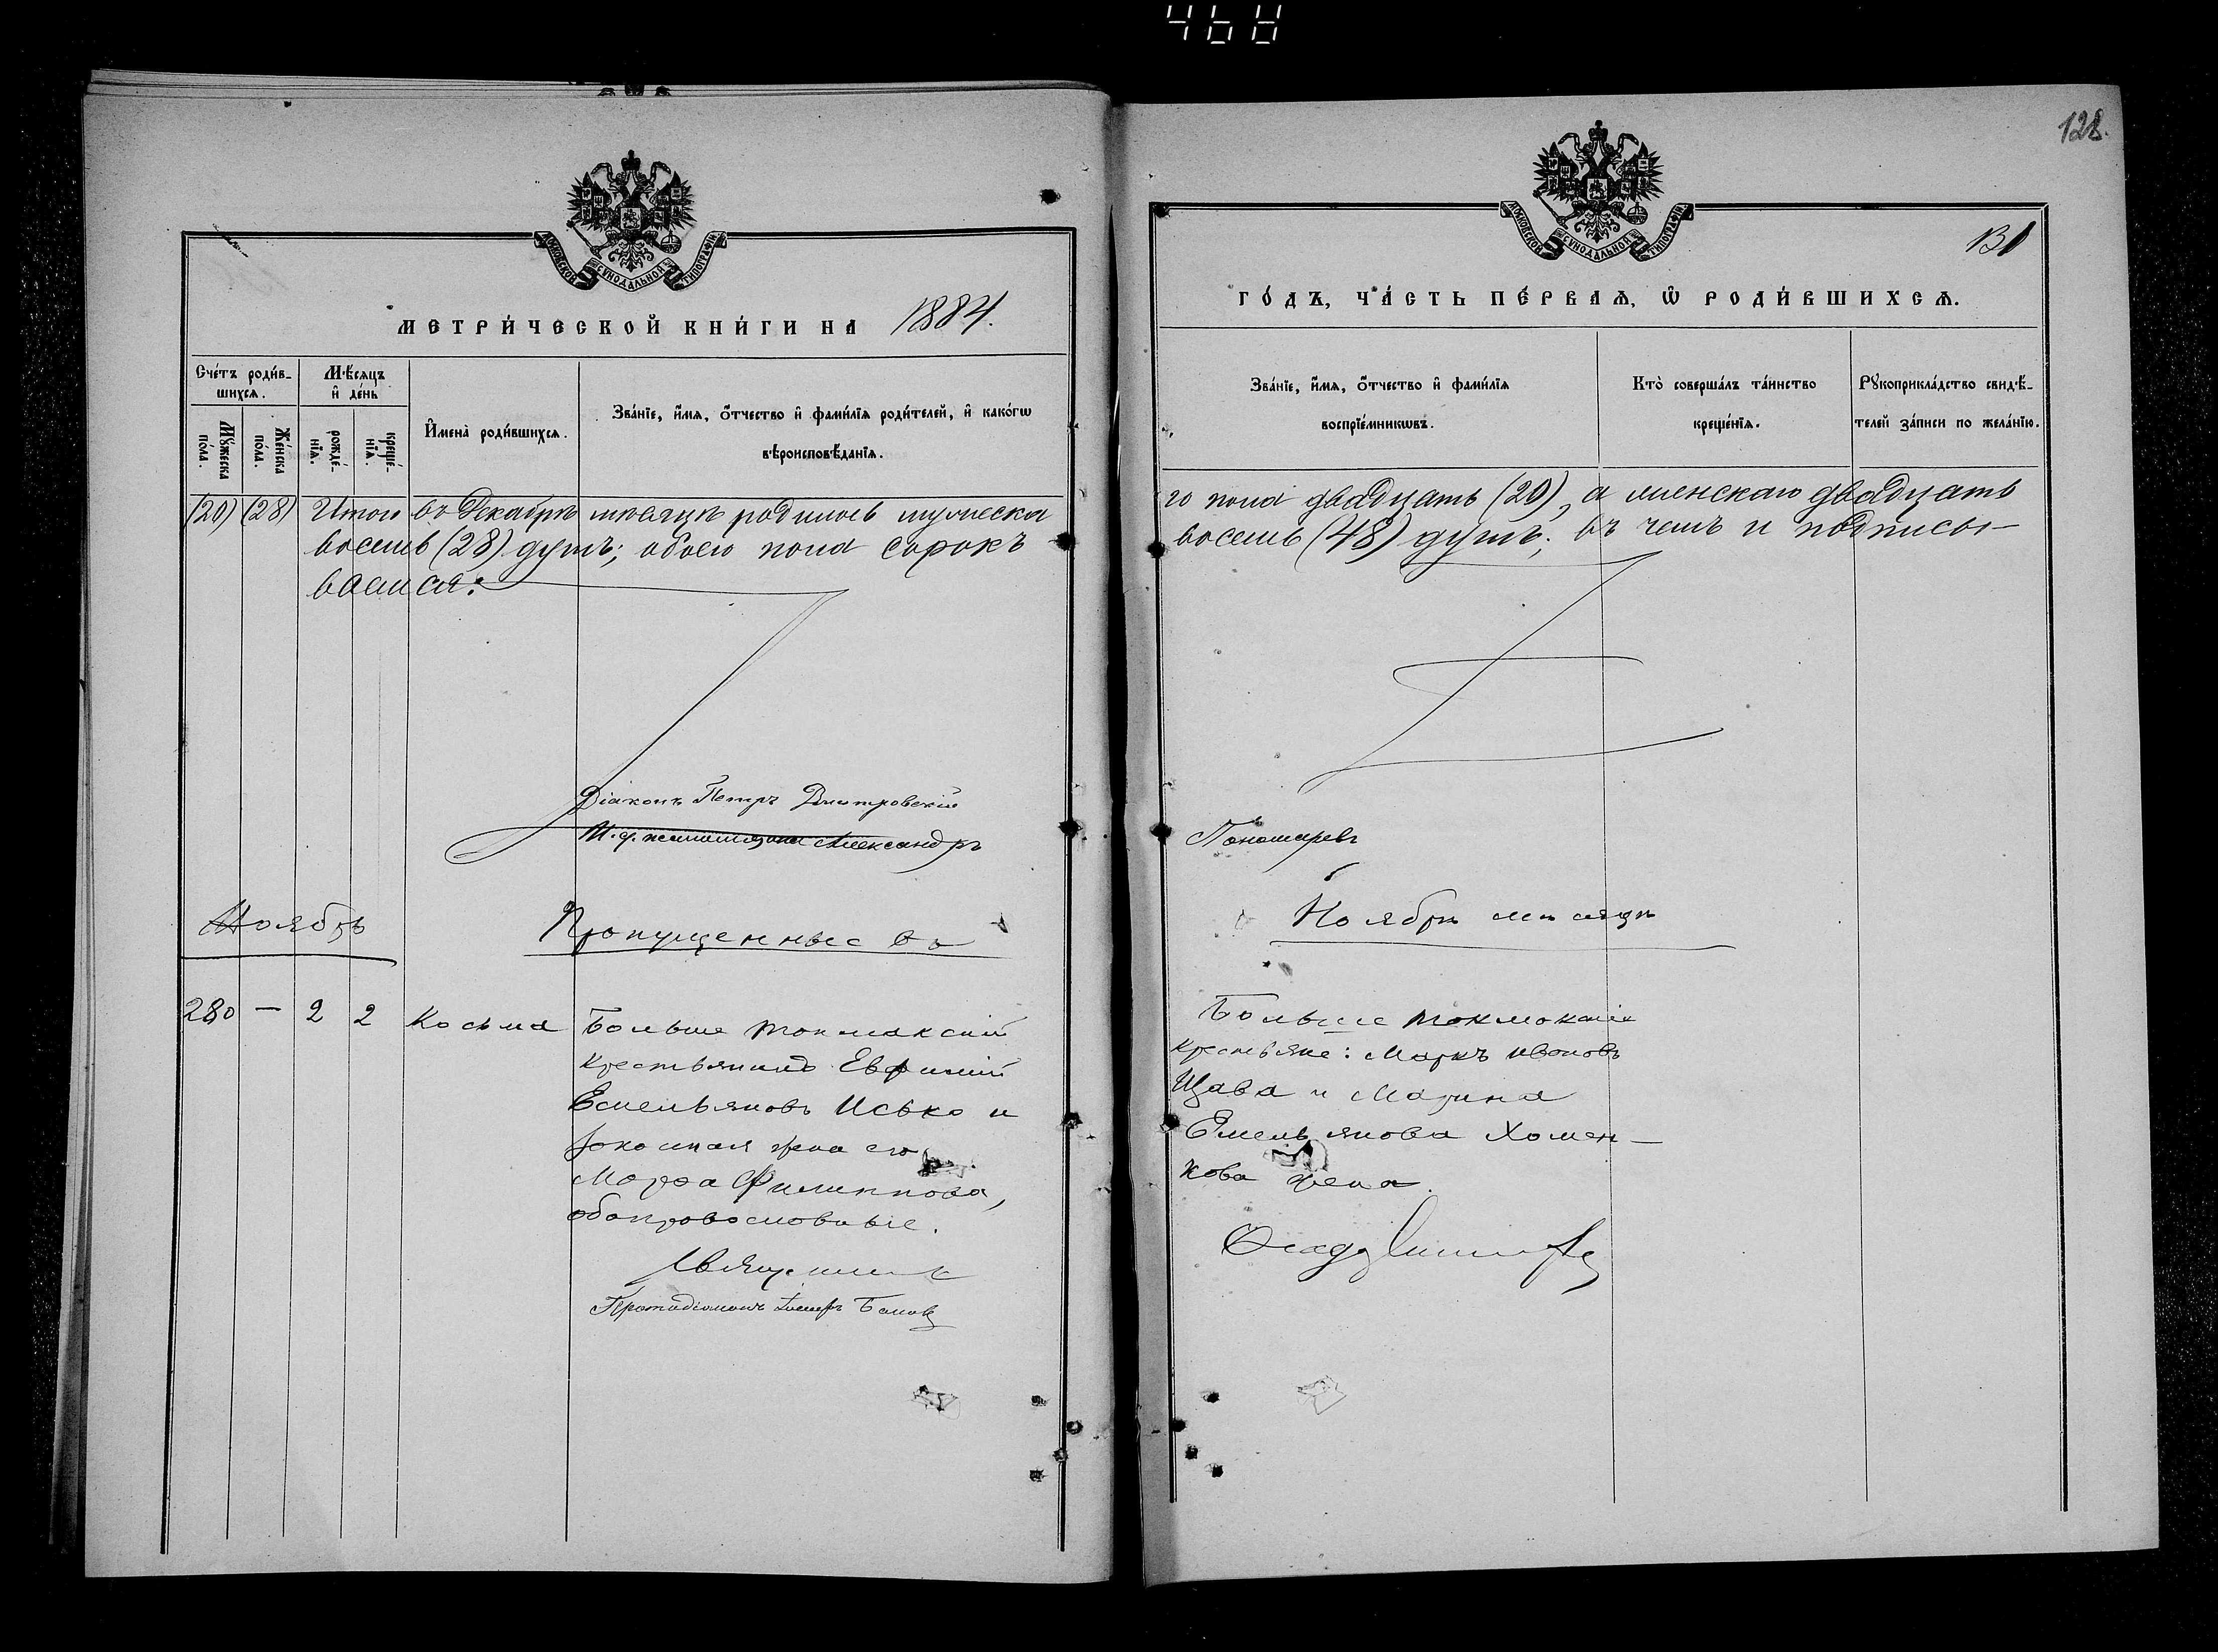 468
128.
131
МОСКОВСКОЙ СѴНОДАЛЬНОЙ ТИПОГРАФІИ
МЕТРИ́ЧЕСКОЙ КНИ́ГИ НА 1884.
Сче́тъ роди́в-
шихсѧ.
Мꙋ́жеска
по́ла.
Же́нска
по́ла.
Мѣ́сяцъ
и҆ де́нь
рожде́-
нїѧ.
креще́-
нїѧ.
И҆мена̀ роди́вшихсѧ.
Зва́нїе, и҆́мѧ, ѻ҆́тчество и҆ фами́лїѧ роди́телей, и҆ како́гѡ
вѣроисповѣ́данїѧ.
(20) (28) Итого въ Декабрѣ мѣсяцѣ родилось мужеска
восемь (28) душъ; обоего пола сорокъ
вались:
Діаконъ Петръ Дмитровскій
И. д. псаломщика Александръ
Ноябрь
Пропущенные въ
280 — 2 2 Косьма Больше Токмакскій
крестьянинъ Евфимій
Емельяновъ Исько и
законная жена его
Марѳа Филиппова,
оба православные.
Священникъ
МОСКОВСКОЙ СѴНОДАЛЬНОЙ ТИПОГРАФІИ
ГО́ДЪ, ЧА́СТЬ ПЕ́РВАѦ, Ѡ҆ РОДИ́ВШИХСѦ.
Зва́нїе, и҆́мѧ, ѻ҆́тчество и҆ фами́лїѧ
воспрїе́мникѡвъ.
Кто̀ соверша́лъ та́инство
креще́нїѧ.
Рꙋкоприкла́дство свидѣ́-
телей за́писи по жела́нїю.
го пола двадцать (20), а женскаго двадцать
восемь (48) душъ; въ чемъ и подписы-
Пономаревъ
Ноябрѣ мѣсяцѣ
Больше Токмакскіе
крестьяне: Маркъ Ивановъ
Щава и Марина
Емельянова Хомен-
кова жена.